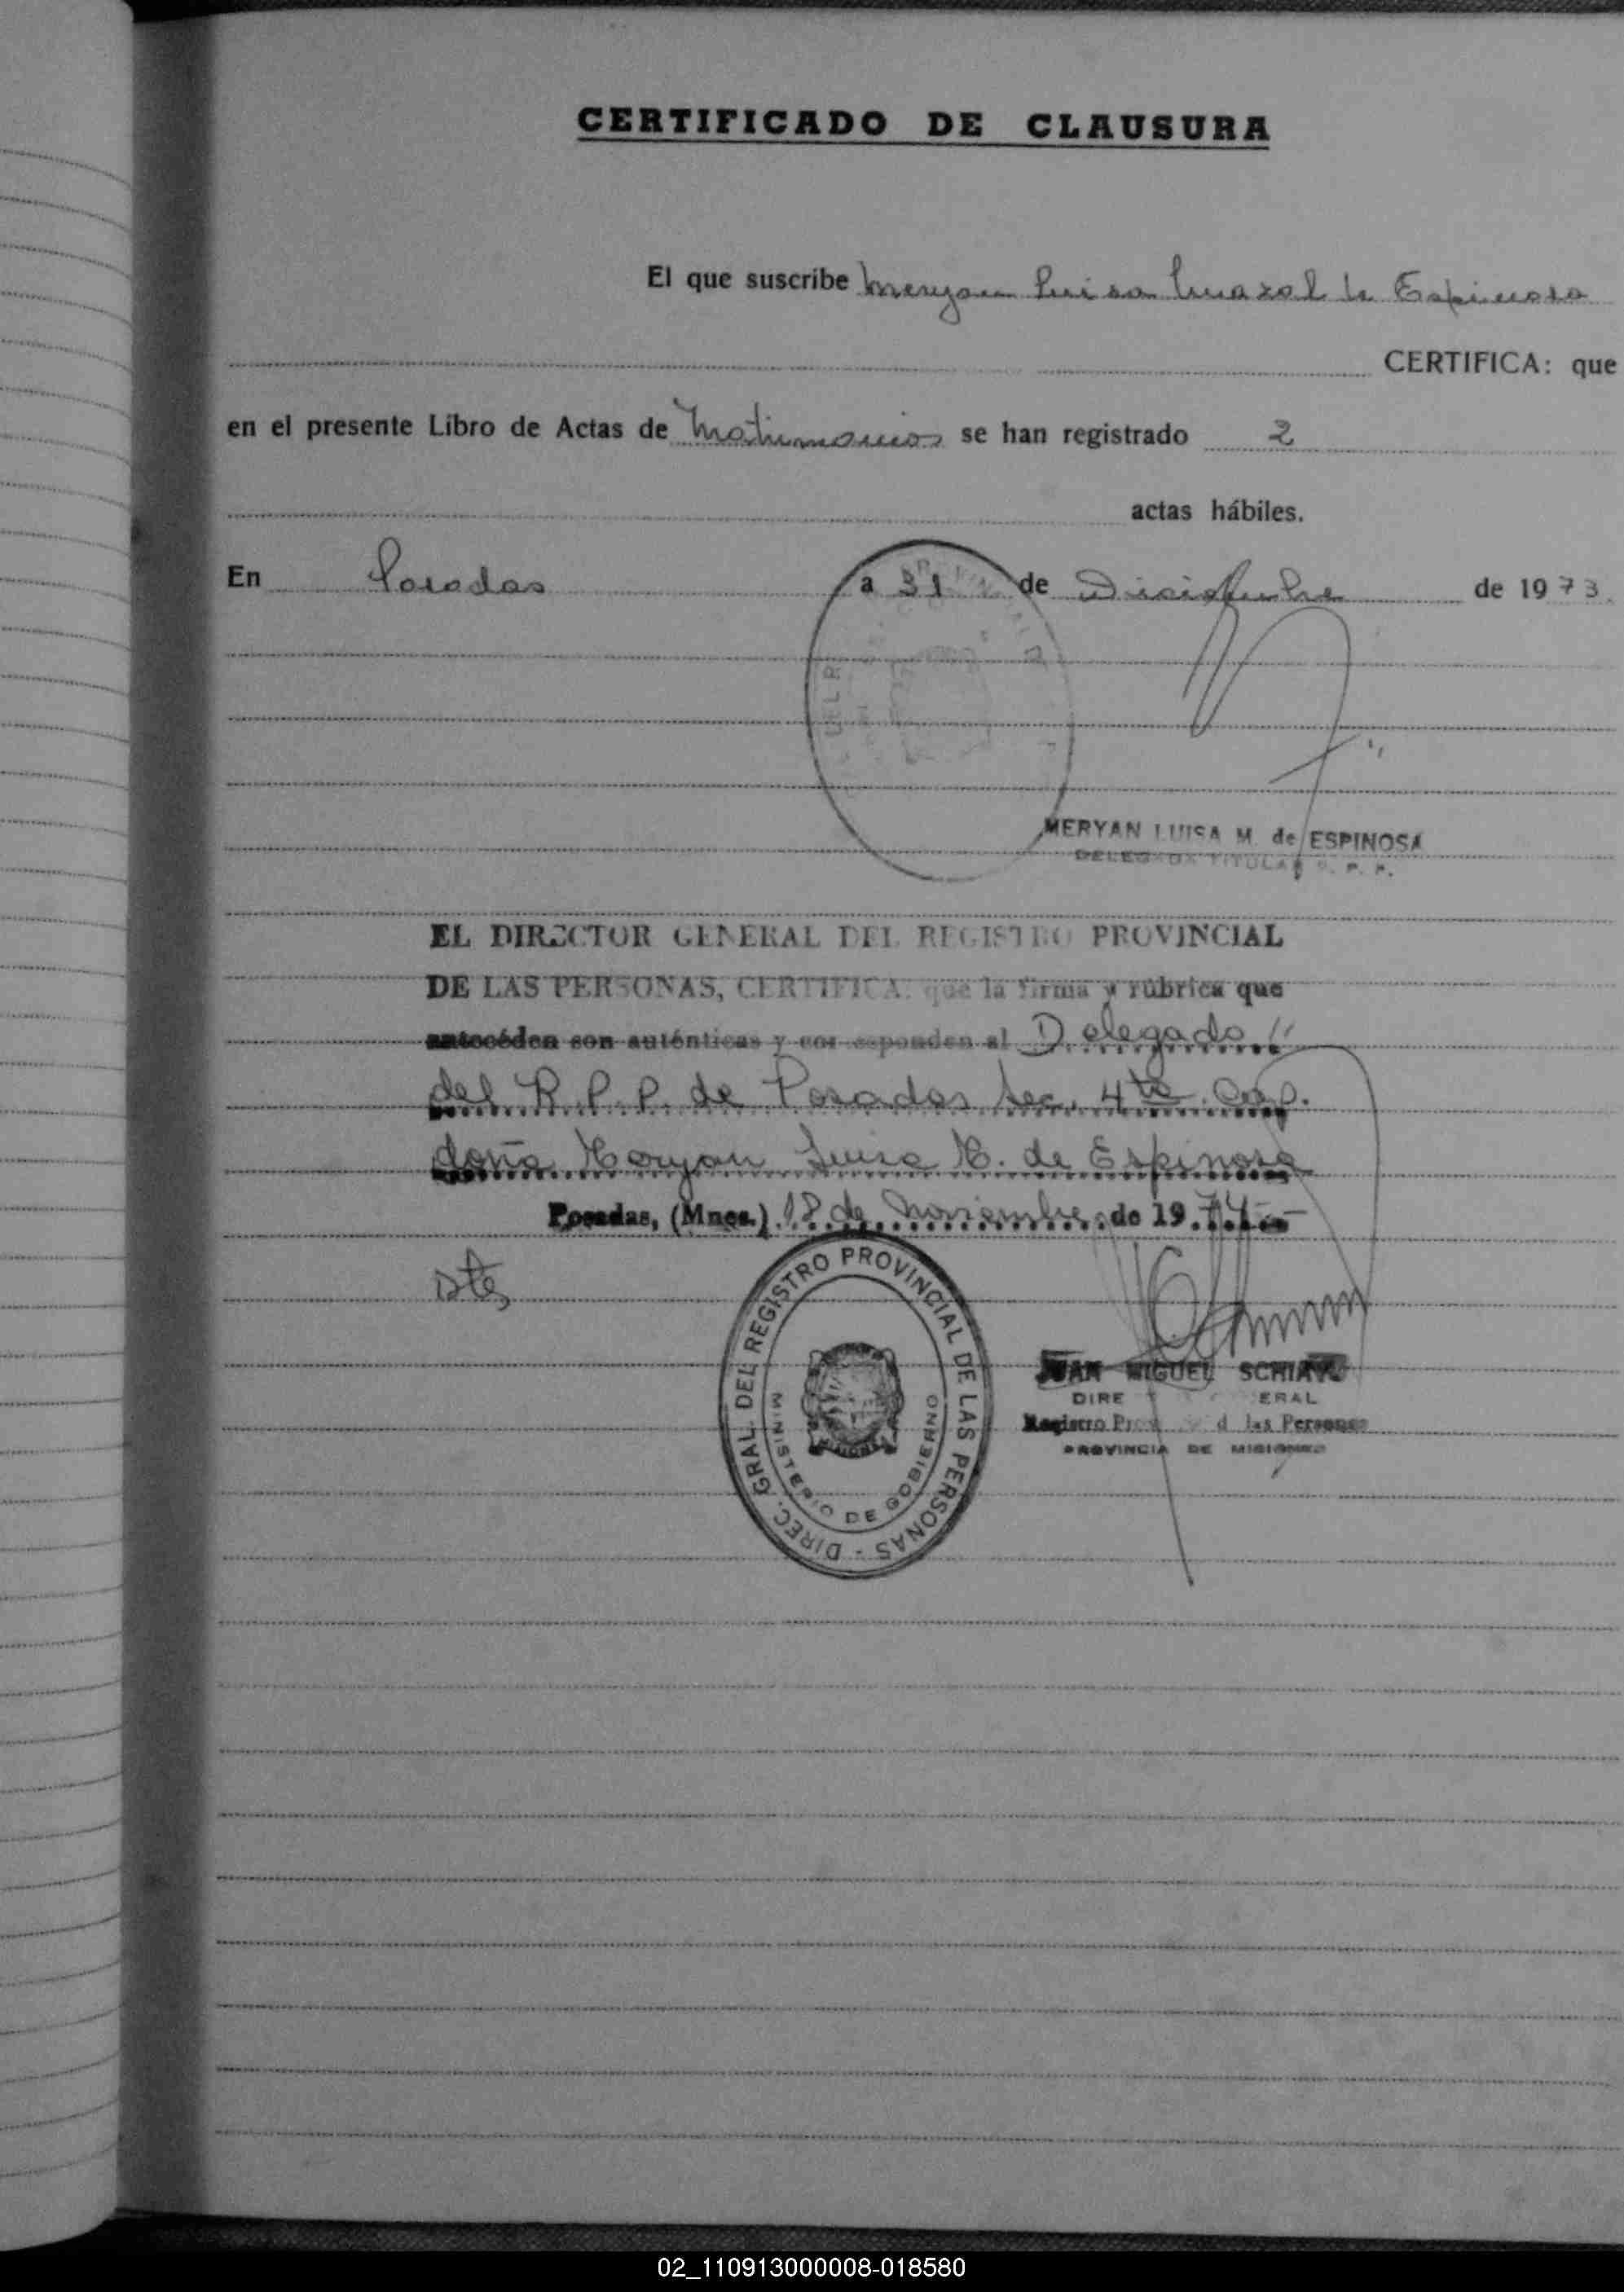 CERTIFICADO DE CLAUSURA
El que suscribe Meryan Luisa de Espinosa
CERTIFICA: que
en el presente Libro de Actas de Matrimonios se han registrado 2
actas hábiles.
En Posadas a 31 de Diciembre de 1973.
MERYAN LUISA M. de ESPINOSA
DELEGADA TITULAR R. P. P.
EL DIRECTOR GENERAL DEL REGISTRO PROVINCIAL
DE LAS PERSONAS, CERTIFICA: que la firma y rúbrica que
antecéden son auténticas y corresponden al Delegado
del R. P. P. de Posadas Sec. 4ta. Cap.
doña Meryan Luisa M. de Espinosa
Posadas, (Mnes.) 18 de Noviembre de 1974
DIREC. GRAL. DEL REGISTRO PROVINCIAL DE LAS PERSONAS -
MINISTERIO DE GOBIERNO
MISIONES
JUAN MIGUEL
DIRECTOR GENERAL
Registro Provincial de las Personas
PROVINCIA DE MISIONES
02_110913000008-018580